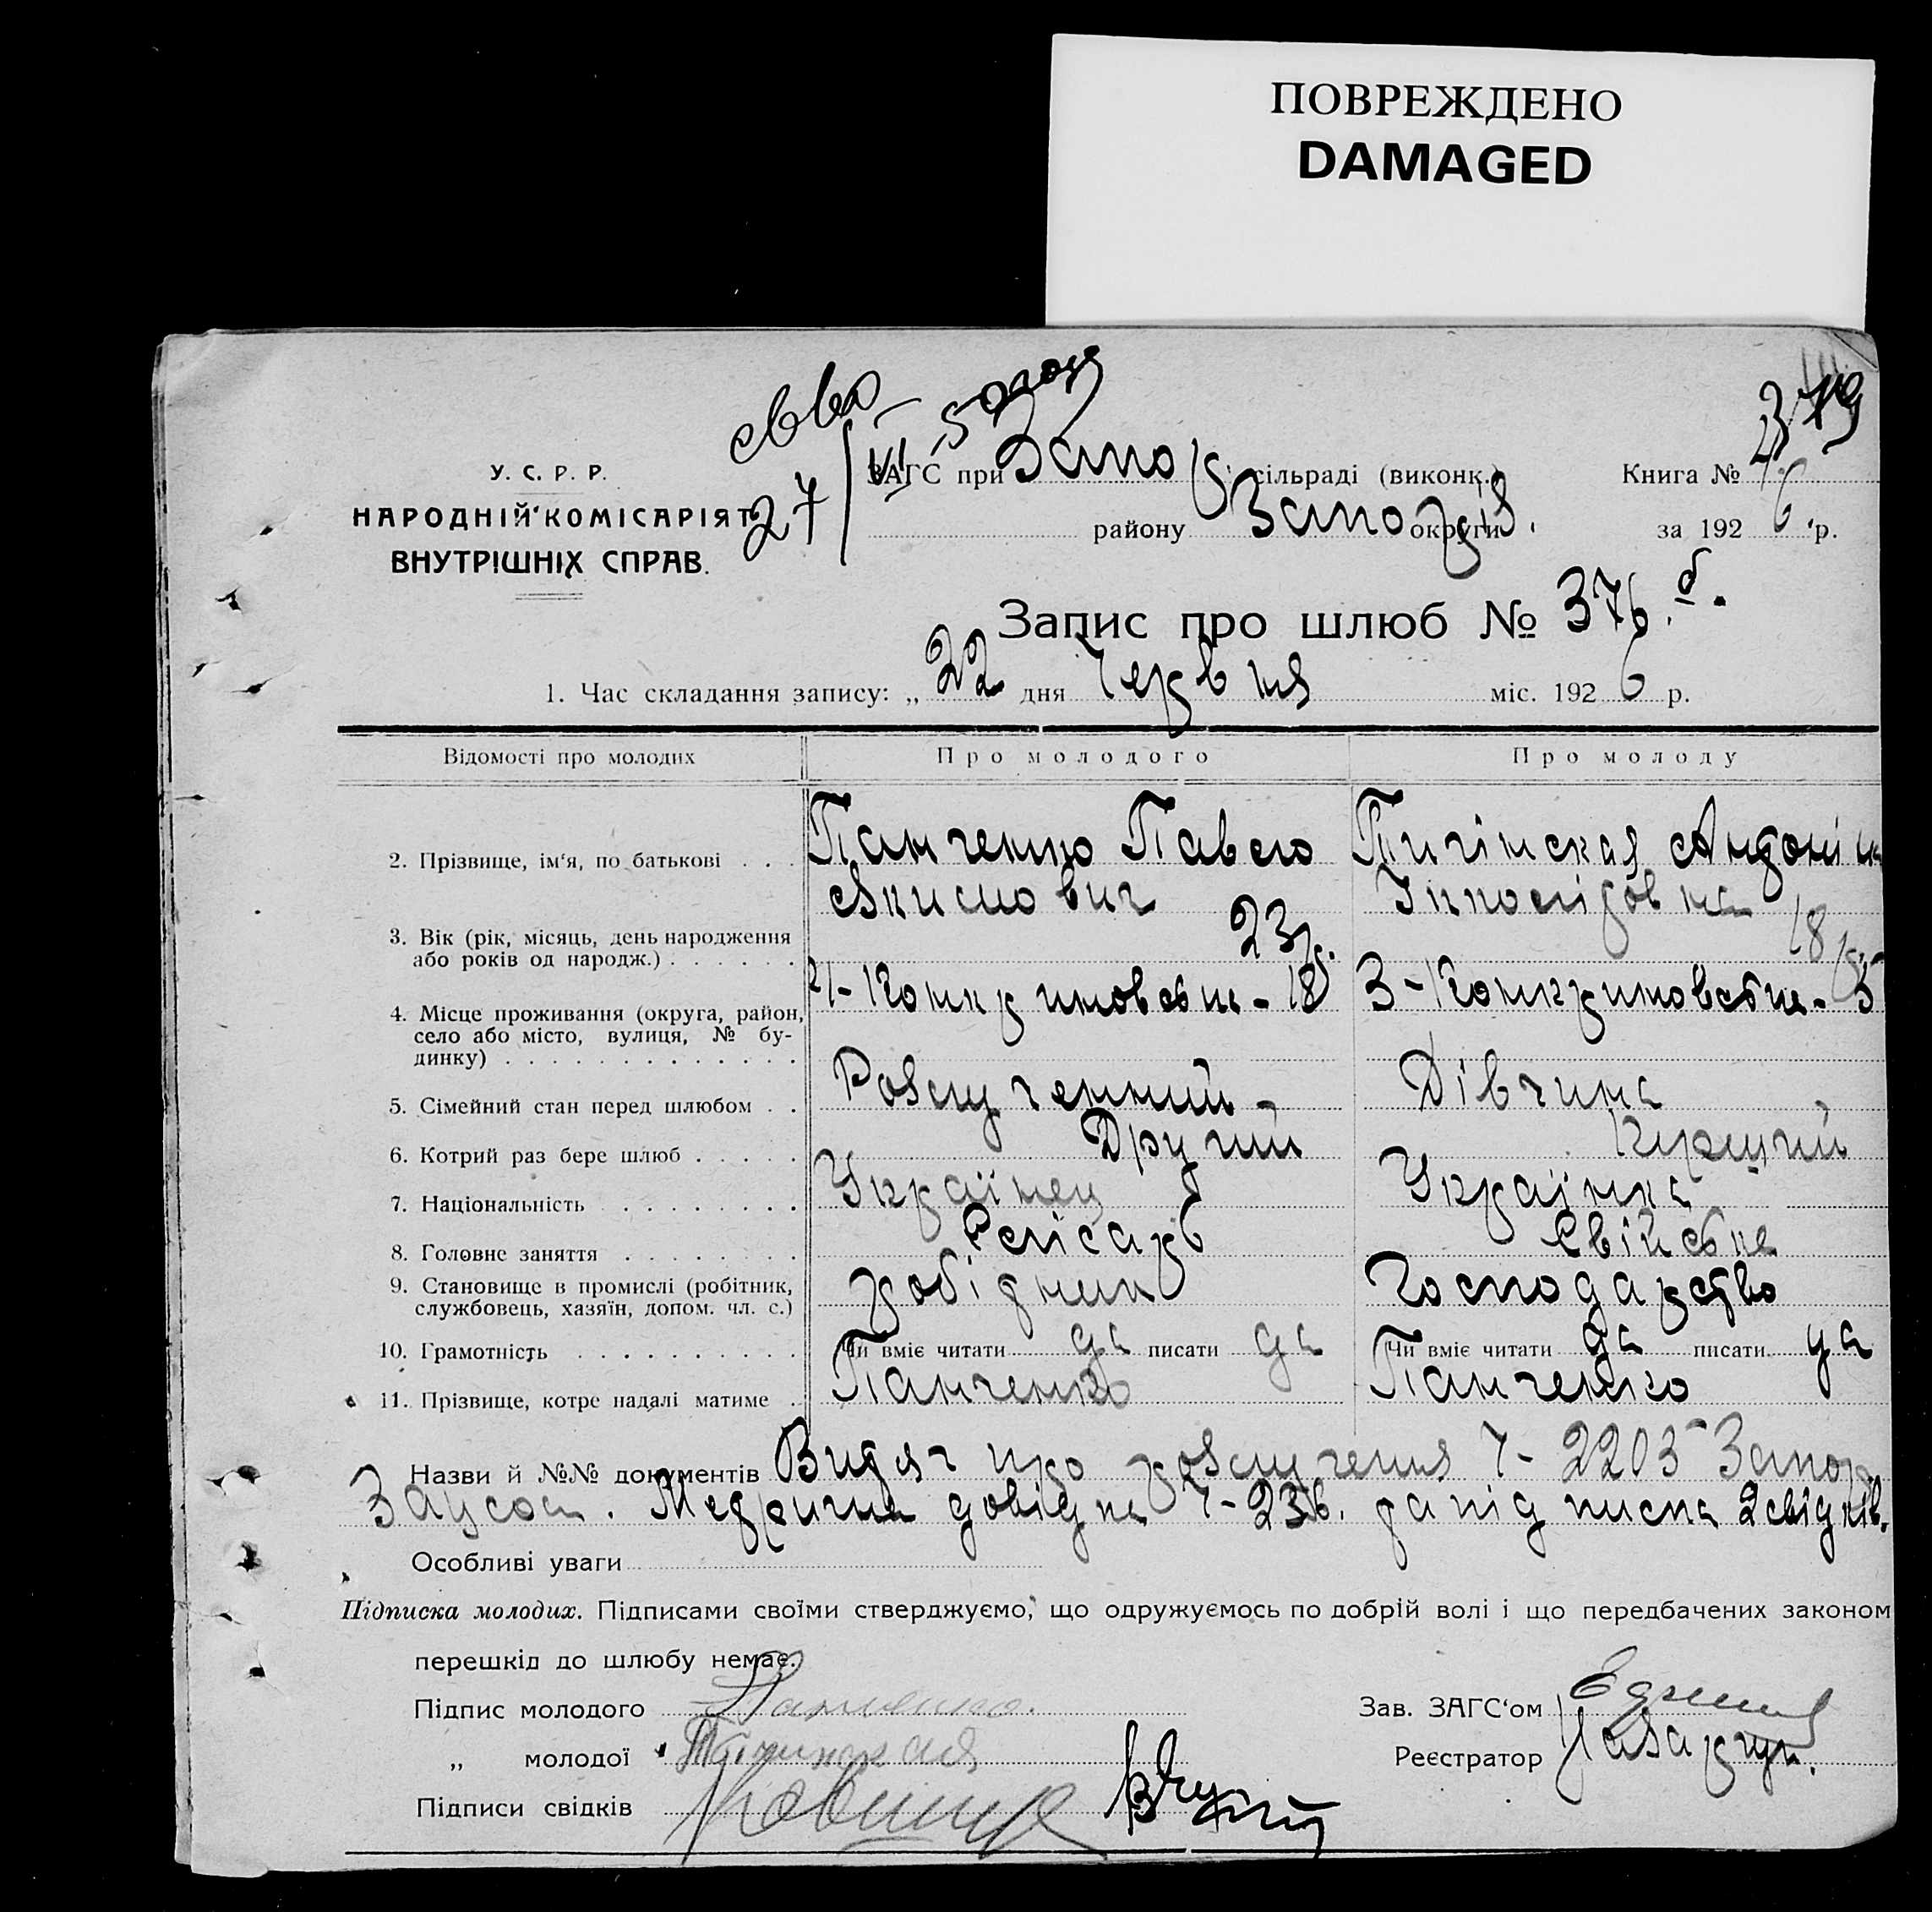 ПОВРЕЖДЕНО
DAMAGED
У. С. Р. Р.
НАРОДНІЙ КОМІСАРІЯТ
ВНУТРІШНІХ СПРАВ.
27/VI
ЗАГС при Запор. сільраді (виконк.)
району Запоріз. округи
Книга №
за 1926 р.
Запис про шлюб № 376.б.
1. Час складання запису: „ 22 дня Червня міс. 1926 р.
Відомості про молодих Про молодого Про молоду
2. Прізвище, ім'я, по батькові . . . Панченко Павело Якимович
Антоніна
3. Вік (рік, місяць, день народження або років од народж.) . . . . . . 23р. 18р.
4. Місце проживання (округа, район, село або місто, вулиця, № будинку) . . . . . . . . . . . . .
5. Сімейний стан перед шлюбом . . Розлученний Дівчина
6. Котрий раз бере шлюб . . . . . Другий Перший
7. Національність . . . . . . . . Українец Українка
8. Головне заняття . . . . . . . . Свійське
9. Становище в промислі (робітник, службовець, хазяїн, допом. чл. с.) робідник Господарство
10. Грамотність . . . . . . . . . . Чи вміє читати да писати да Чи вміє читати да писати да
11. Прізвище, котре надалі матиме . Панченко Панченко
Назви й №№ документів Витяг про розлучення Ч- 2203 Запор.
довідка Ч-236. да підписка 2 свідків.
Особливі уваги
Підписка молодих. Підписами своїми стверджуємо, що одружуємось по добрій волі і що передбачених законом
перешкід до шлюбу немає.
Підпис молодого Панченко.
Зав. ЗАГС'ом
„ молодої
Реєстратор
Підписи свідків